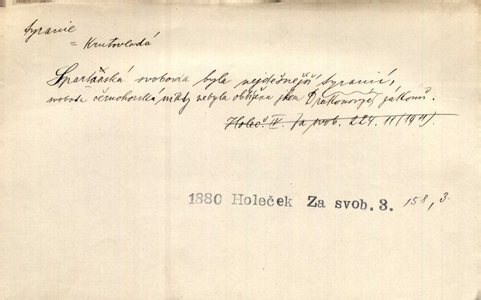 tyranie
= Krutovláda
Spartánská svoboda byla nejděsnější tyranií,
svoboda černohorská nikdy nebyla obtížena jhem Drakonových zákonů.
Holeč. IV. Za svob. 224. II (1911).
1880 Holeček Za svob. 3. 158, 3.